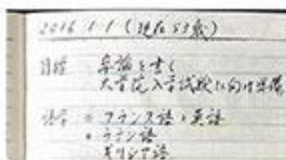 2016.1.1 (現在53歳)
目標 卒論を書く
大学院入学試験に向け準備
語学 • フランス語、英語
• ラテン語
ギリシア語